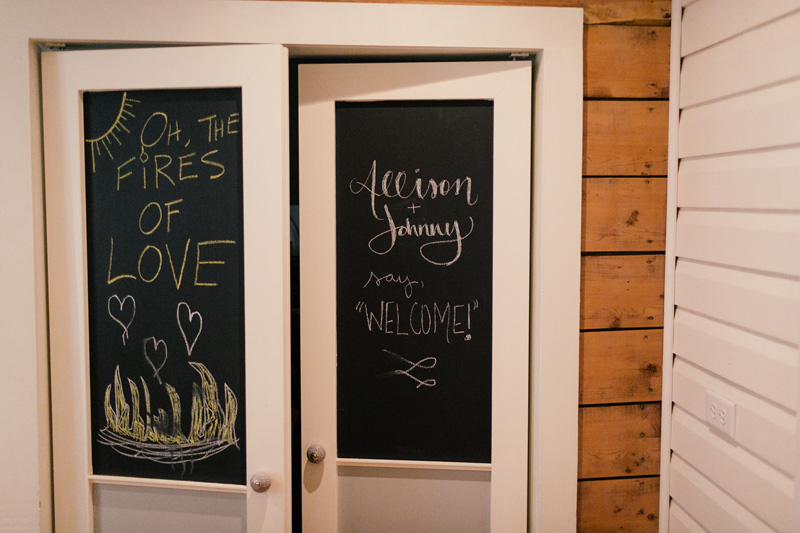 OH, THE
FIRES
OF
LOVE
Allison
+
Johnny
say,
"WELCOME!"